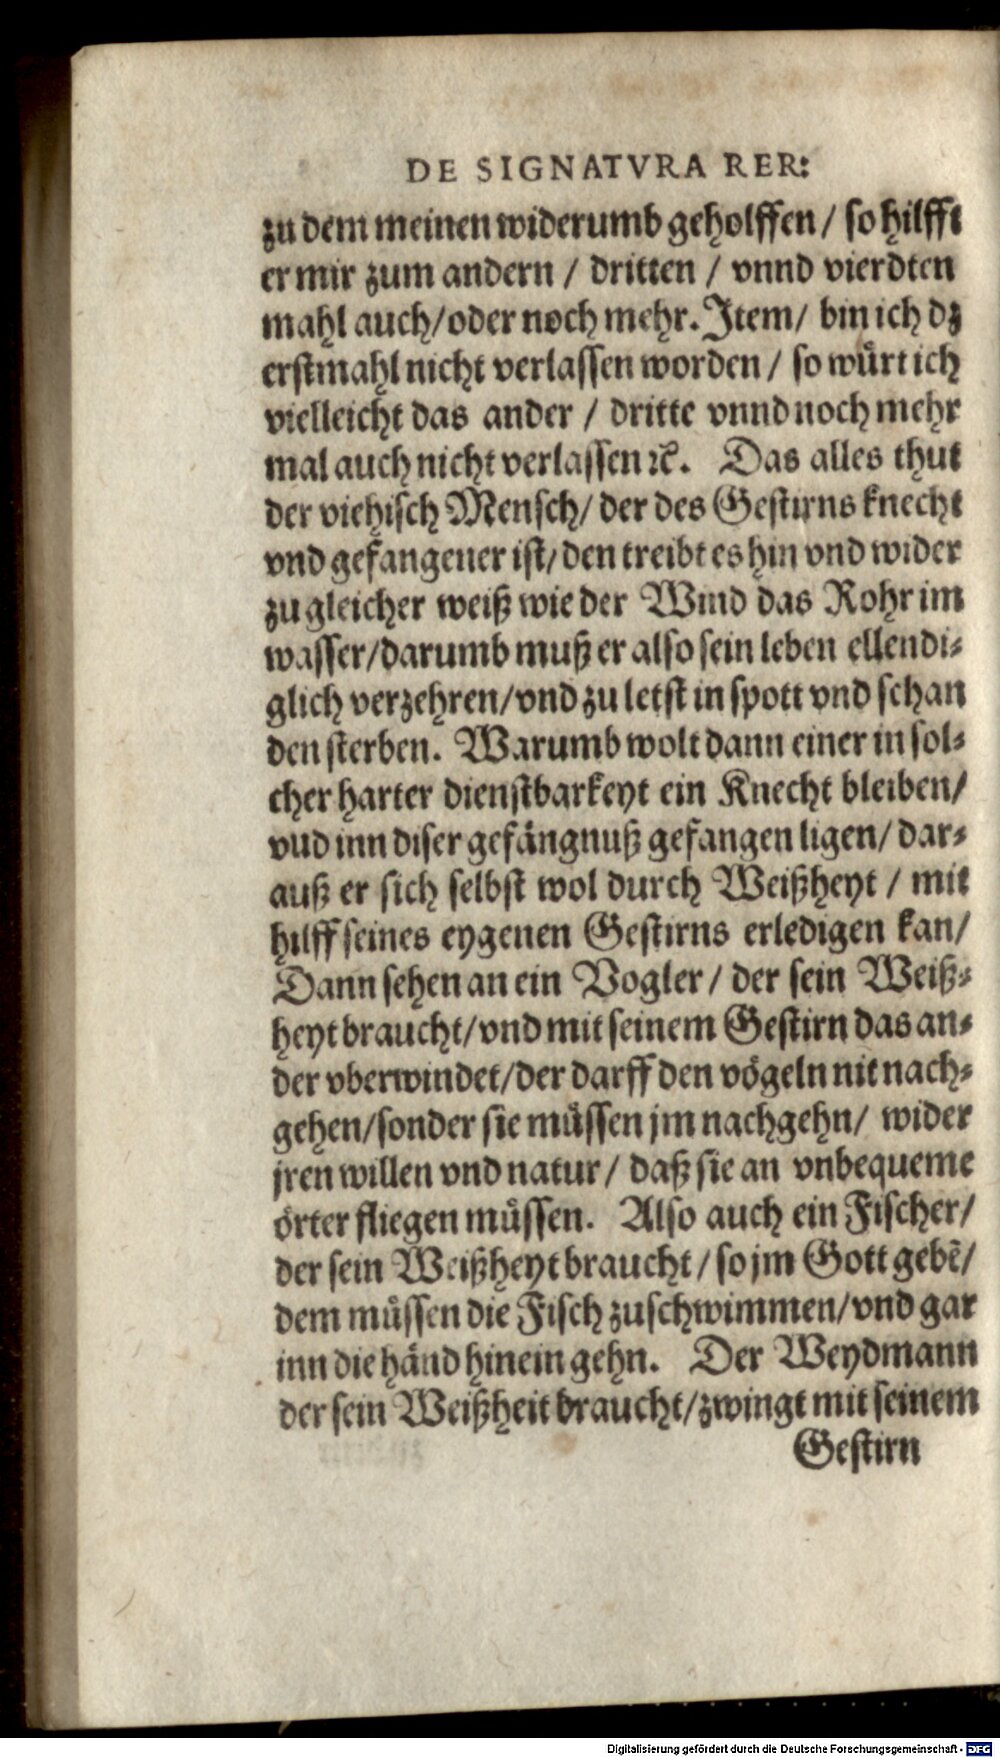 DE SIGNATVRA RER:
zu dem meinen widerumb geholffen / so hilfft
er mir zum andern / dritten / vnnd vierdten
mahl auch/oder noch mehr. Item/ bin ich dz
erstmahl nicht verlassen worden / so würt ich
vielleicht das ander / dritte vnnd noch mehr
mal auch nicht verlassen ꝛc̃. Das alles thut
der viehisch Mensch/ der des Gestirns knecht
vnd gefangener ist/ den treibt es hin vnd wider
zu gleicher weiß wie der Wind das Rohr im
wasser/darumb muß er also sein leben ellendi⸗
glich verzehren/vnd zu letst in spott vnd schan
den sterben. Warumb wolt dann einer in sol⸗
cher harter dienstbarkeyt ein Knecht bleiben/
vud inn diser gefängnuß gefangen ligen/ dar⸗
auß er sich selbst wol durch Weißheyt / mit
hilff seines eygenen Gestirns erledigen kan/
Dann sehen an ein Vogler / der sein Weiß⸗
heyt braucht/vnd mit seinem Gestirn das an⸗
der vberwindet/der darff den vögeln nit nach⸗
gehen/sonder sie müssen jm nachgehn/ wider
jren willen vnd natur / daß sie an vnbequeme
örter fliegen müssen. Also auch ein Fischer/
der sein Weißheyt braucht / so jm Gott gebē/
dem müssen die Fisch zuschwimmen/vnd gar
inn die händ hinein gehn. Der Weydmann
der sein Weißheit braucht/zwingt mit seinem
Gestirn
Digitalisierung gefördert durch die Deutsche Forschungsgemeinschaft - DFG